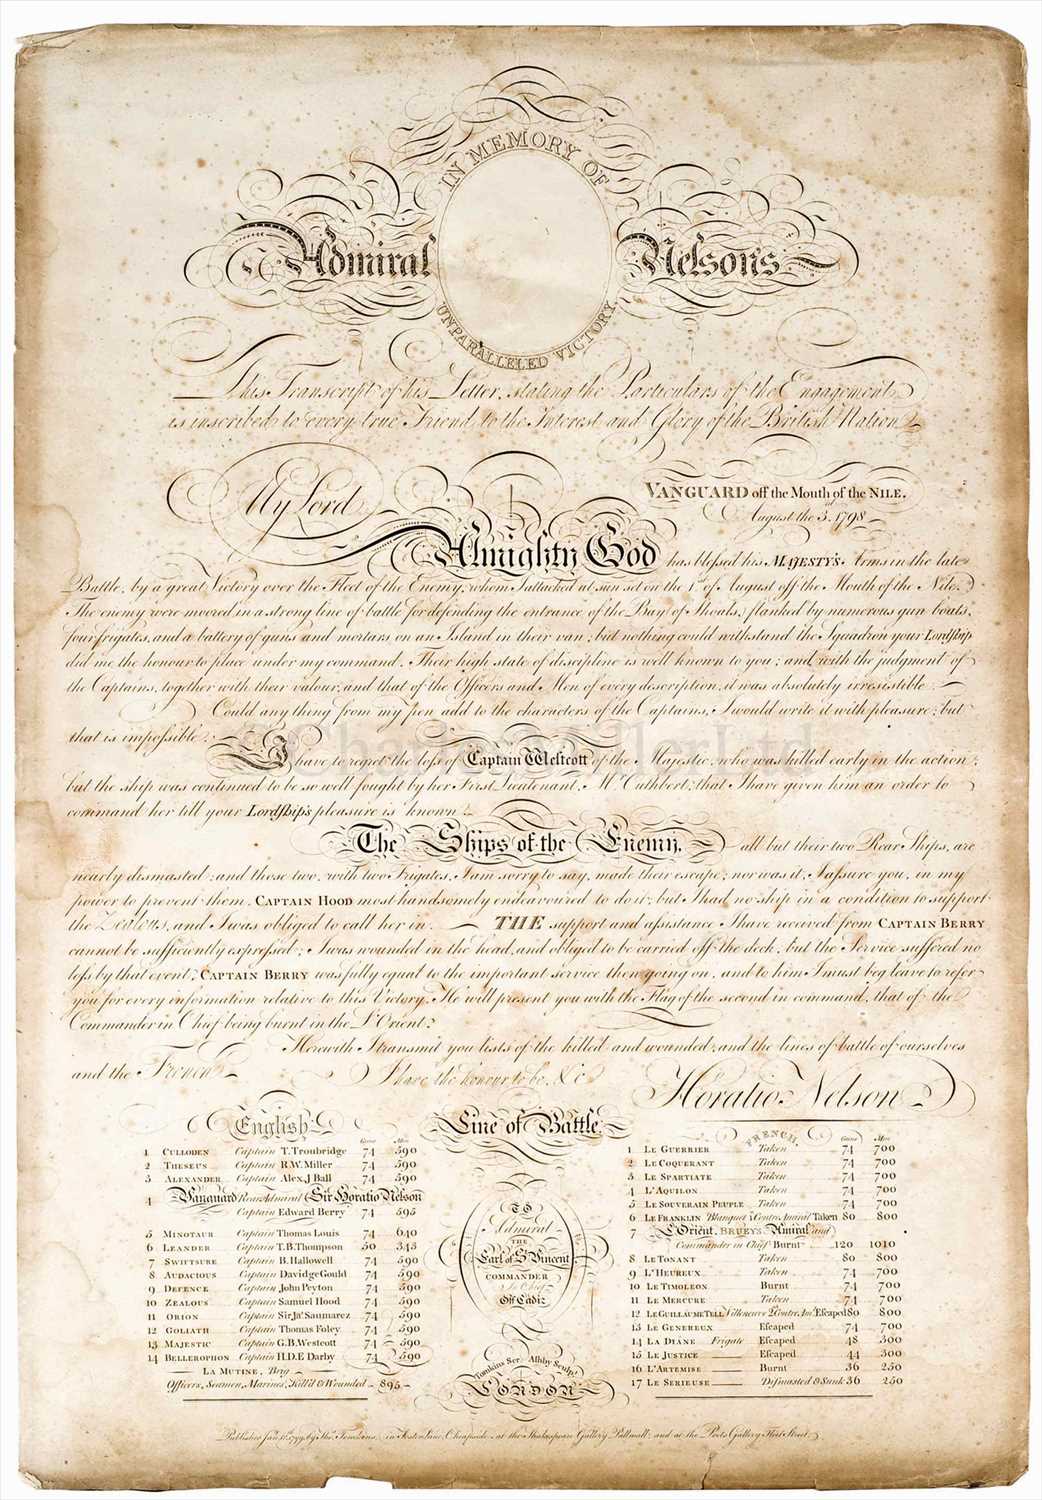 IN MEMORY OF
Admiral Nelson's
UNPARALLELED VICTORY
This Transcript of his Letter, stating the Particulars of the Engagement
is inscribed to every true Friend to the Interest and Glory of the British Nation
My Lord
VANGUARD off the Mouth of the NILE.
August the 3d. 1798
Almighty God has blessed his MAJESTY'S Arms in the late
Battle, by a great Victory over the Fleet of the Enemy, whom I attacked at sun set on the 1st of August off the Mouth of the Nile.
The enemy were moored in a strong line of battle for defending the entrance of the Bay of Shoals, flanked by numerous gun boats,
four frigates, and a battery of guns and mortars on an Island in their van; but nothing could withstand the Squadron your Lordship
did me the honour to place under my command. Their high state of discipline is well known to you; and with the judgment of
the Captains, together with their valour, and that of the Officers and Men of every description, it was absolutely irresistible.
Could any thing from my pen add to the characters of the Captains, I would write it with pleasure; but
that is impossible.
I have to regret the loss of Captain Westcott of the Majestic, who was killed early in the action;
but the ship was continued to be so well fought by her First Lieutenant, Mr. Cuthbert, that I have given him an order to
command her till your Lordship's pleasure is known.
The Ships of the Enemy, all but their two Rear Ships, are
nearly dismasted; and those two, with two Frigates, I am sorry to say, made their escape; nor was it, I assure you, in my
power to prevent them. CAPTAIN HOOD most handsomely endeavoured to do it; but I had no ship in a condition to support
the Zealous, and I was obliged to call her in. THE support and assistance I have received from CAPTAIN BERRY
cannot be sufficiently expressed; I was wounded in the head, and obliged to be carried off the deck, but the Service suffered no
loss by that event; CAPTAIN BERRY was fully equal to the important service then going on, and to him I must beg leave to refer
you for every information relative to this Victory. He will present you with the Flag of the second in command, that of the
Commander in Chief being burnt in the L'Orient.
Herewith I transmit you lists of the killed and wounded, and the lines of battle of ourselves
and the French
I have the honour to be, &c
Horatio Nelson
English
Guns Men
1 CULLODEN Captain T. Troubridge 74 590
2 THESEUS Captain R.W. Miller 74 590
3 ALEXANDER Captain Alex.J Ball 74 590
4 Vanguard Rear Admiral Sir Horatio Nelson
Captain Edward Berry 74 595
5 MINOTAUR Captain Thomas Louis 74 640
6 LEANDER Captain T.B. Thompson 50 343
7 SWIFTSURE Captain B. Hallowell 74 590
8 AUDACIOUS Captain Davidge Gould 74 590
9 DEFENCE Captain John Peyton 74 590
10 ZEALOUS Captain Samuel Hood 74 590
11 ORION Captain Sir Jas. Saumarez 74 590
12 GOLIATH Captain Thomas Foley 74 590
13 MAJESTIC Captain G.B. Westcott 74 590
14 BELLEROPHON Captain H.D.E Darby 74 590
LA MUTINE, Brig
Officers, Seamen, Marines, Kill'd & Wounded 895
Line of Battle
TO
Admiral
THE
Earl of St Vincent
COMMANDER
in Chief
Off Cadiz
Tomkins Scr. Ashby Sculpt.
LONDON
FRENCH.
Guns Men
1 LE GUERRIER Taken 74 700
2 LE COQUERANT Taken 74 700
3 LE SPARTIATE Taken 74 700
4 L'AQUILON Taken 74 700
5 LE SOUVERAIN PEUPLE Taken 74 700
6 LE FRANKLIN Blanquet 1 Contre Amiral Taken 80 800
7 L'Orient, BRUEYS Amiral and
Commander in Chief Burnt 120 1010
8 LE TONANT Taken 80 800
9 L'HEUREUX Taken 74 700
10 LE TIMOLEON Burnt 74 700
11 LE MERCURE Taken 74 700
12 LE GUILLAUME TELL Villeneuve 2 Contre Aml. Escaped 80 800
13 LE GENEREUX Escaped 74 700
14 LA DIANE Frigate Escaped 48 300
15 LE JUSTICE Escaped 44 300
16 L'ARTEMISE Burnt 36 250
17 LE SERIEUSE Dismasted & Sunk 36 250
Publish'd Jan. 1st. 1799, by Thos. Tomkins, in Foster Lane, Cheapside, at the Shakespeare Gallery Pallmall; and at the Poets Gallery Fleet Street.
© Charles Miller Ltd